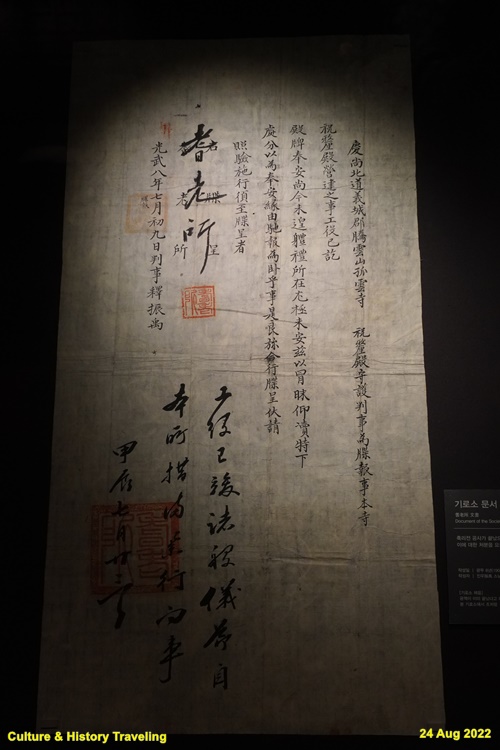 慶尚北道義城郡騰雲山孤雲寺 祝釐殿守護判事為牒報事本寺
祝釐殿營建之事工役已訖
殿牌奉安尚今未遑體禮所在尤極未安玆以冒昧仰瀆特下
處分以為奉安緣由馳報為卧乎事是良旀合行牒呈伏請
照驗施行須至牒呈者
右牒呈
耆老所
耆老所
光武八年七月初九日判事釋振禹
工役已竣諸般儀節自
本所措備
向事
甲辰七月廿三
기로소 문서
耆老所 文書
Culture & History Traveling
24 Aug 2022